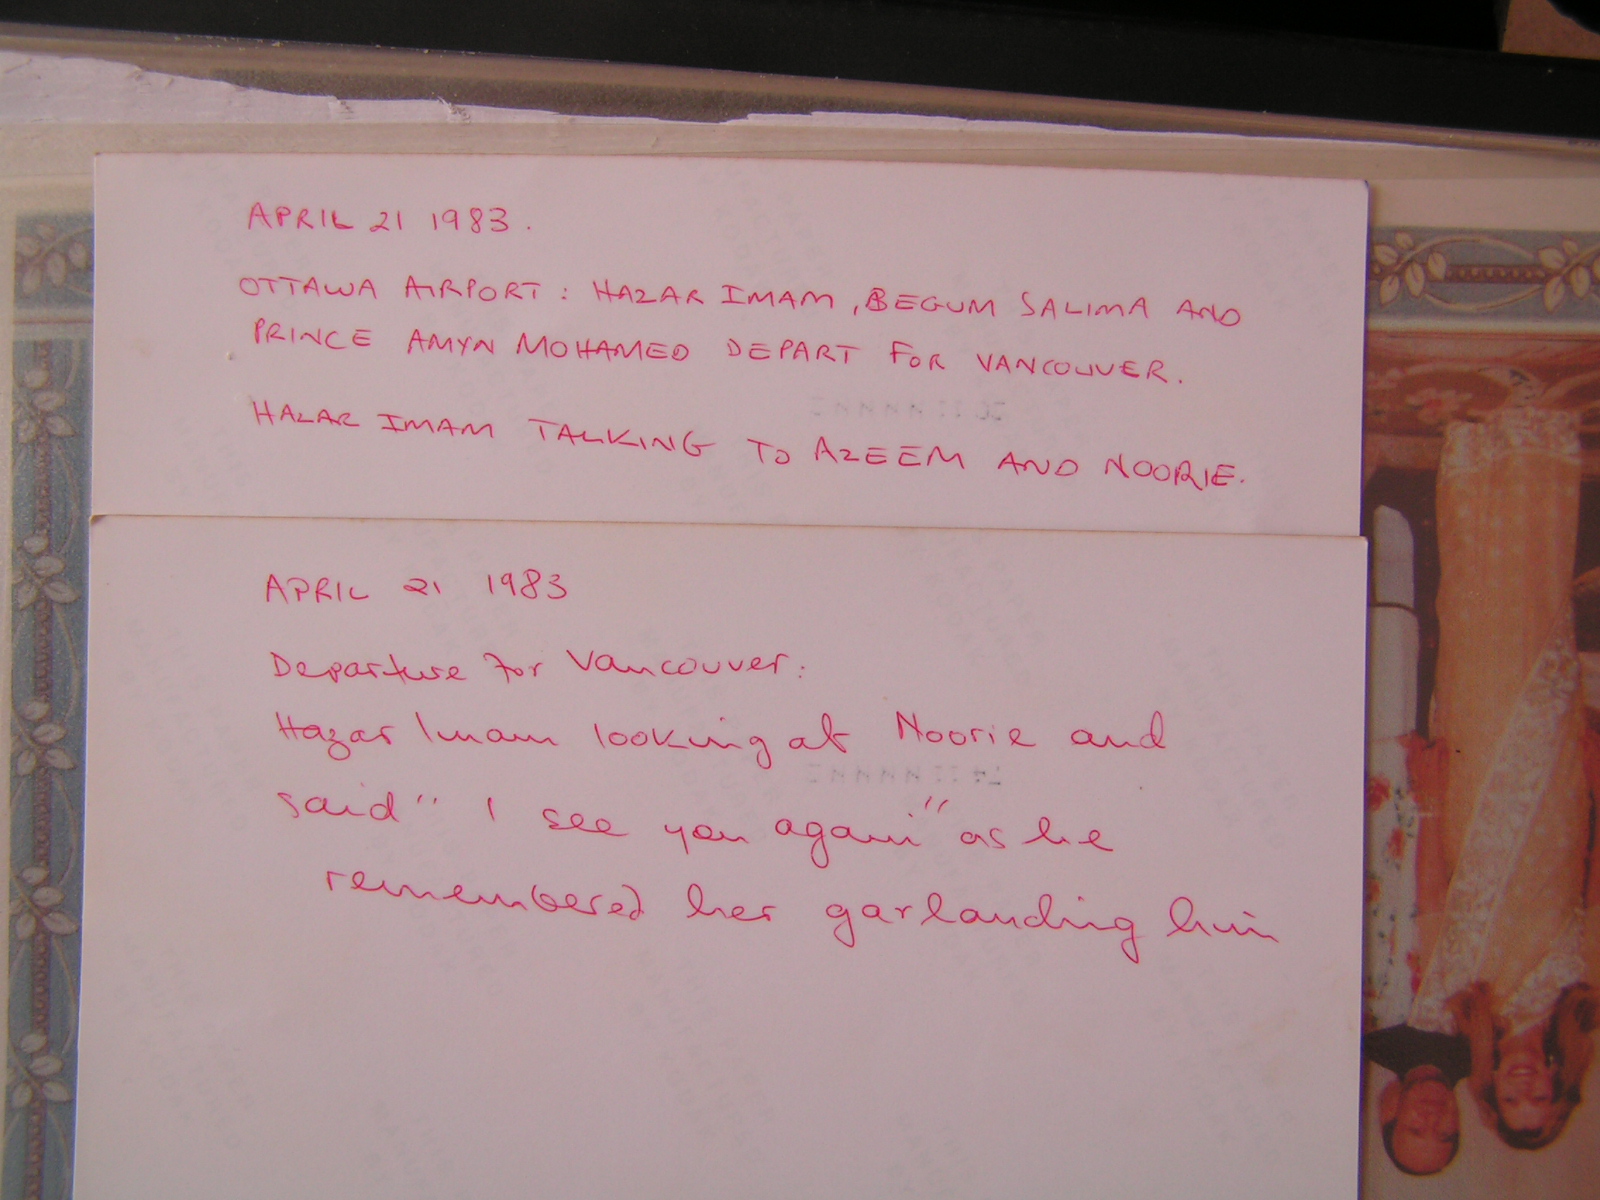 APRIL 21 1983.
OTTAWA AIRPORT: HAZAR IMAM, BEGUM SALIMA AND
PRINCE AMYN MOHAMED DEPART FOR VANCOUVER.
HAZAR IMAM TALKING TO AZEEM AND NOORIE.
APRIL 21 1983
Departure for Vancouver:
Hazar Imam looking at Noorie and
said " I see you again" as he
remembered her garlanding him